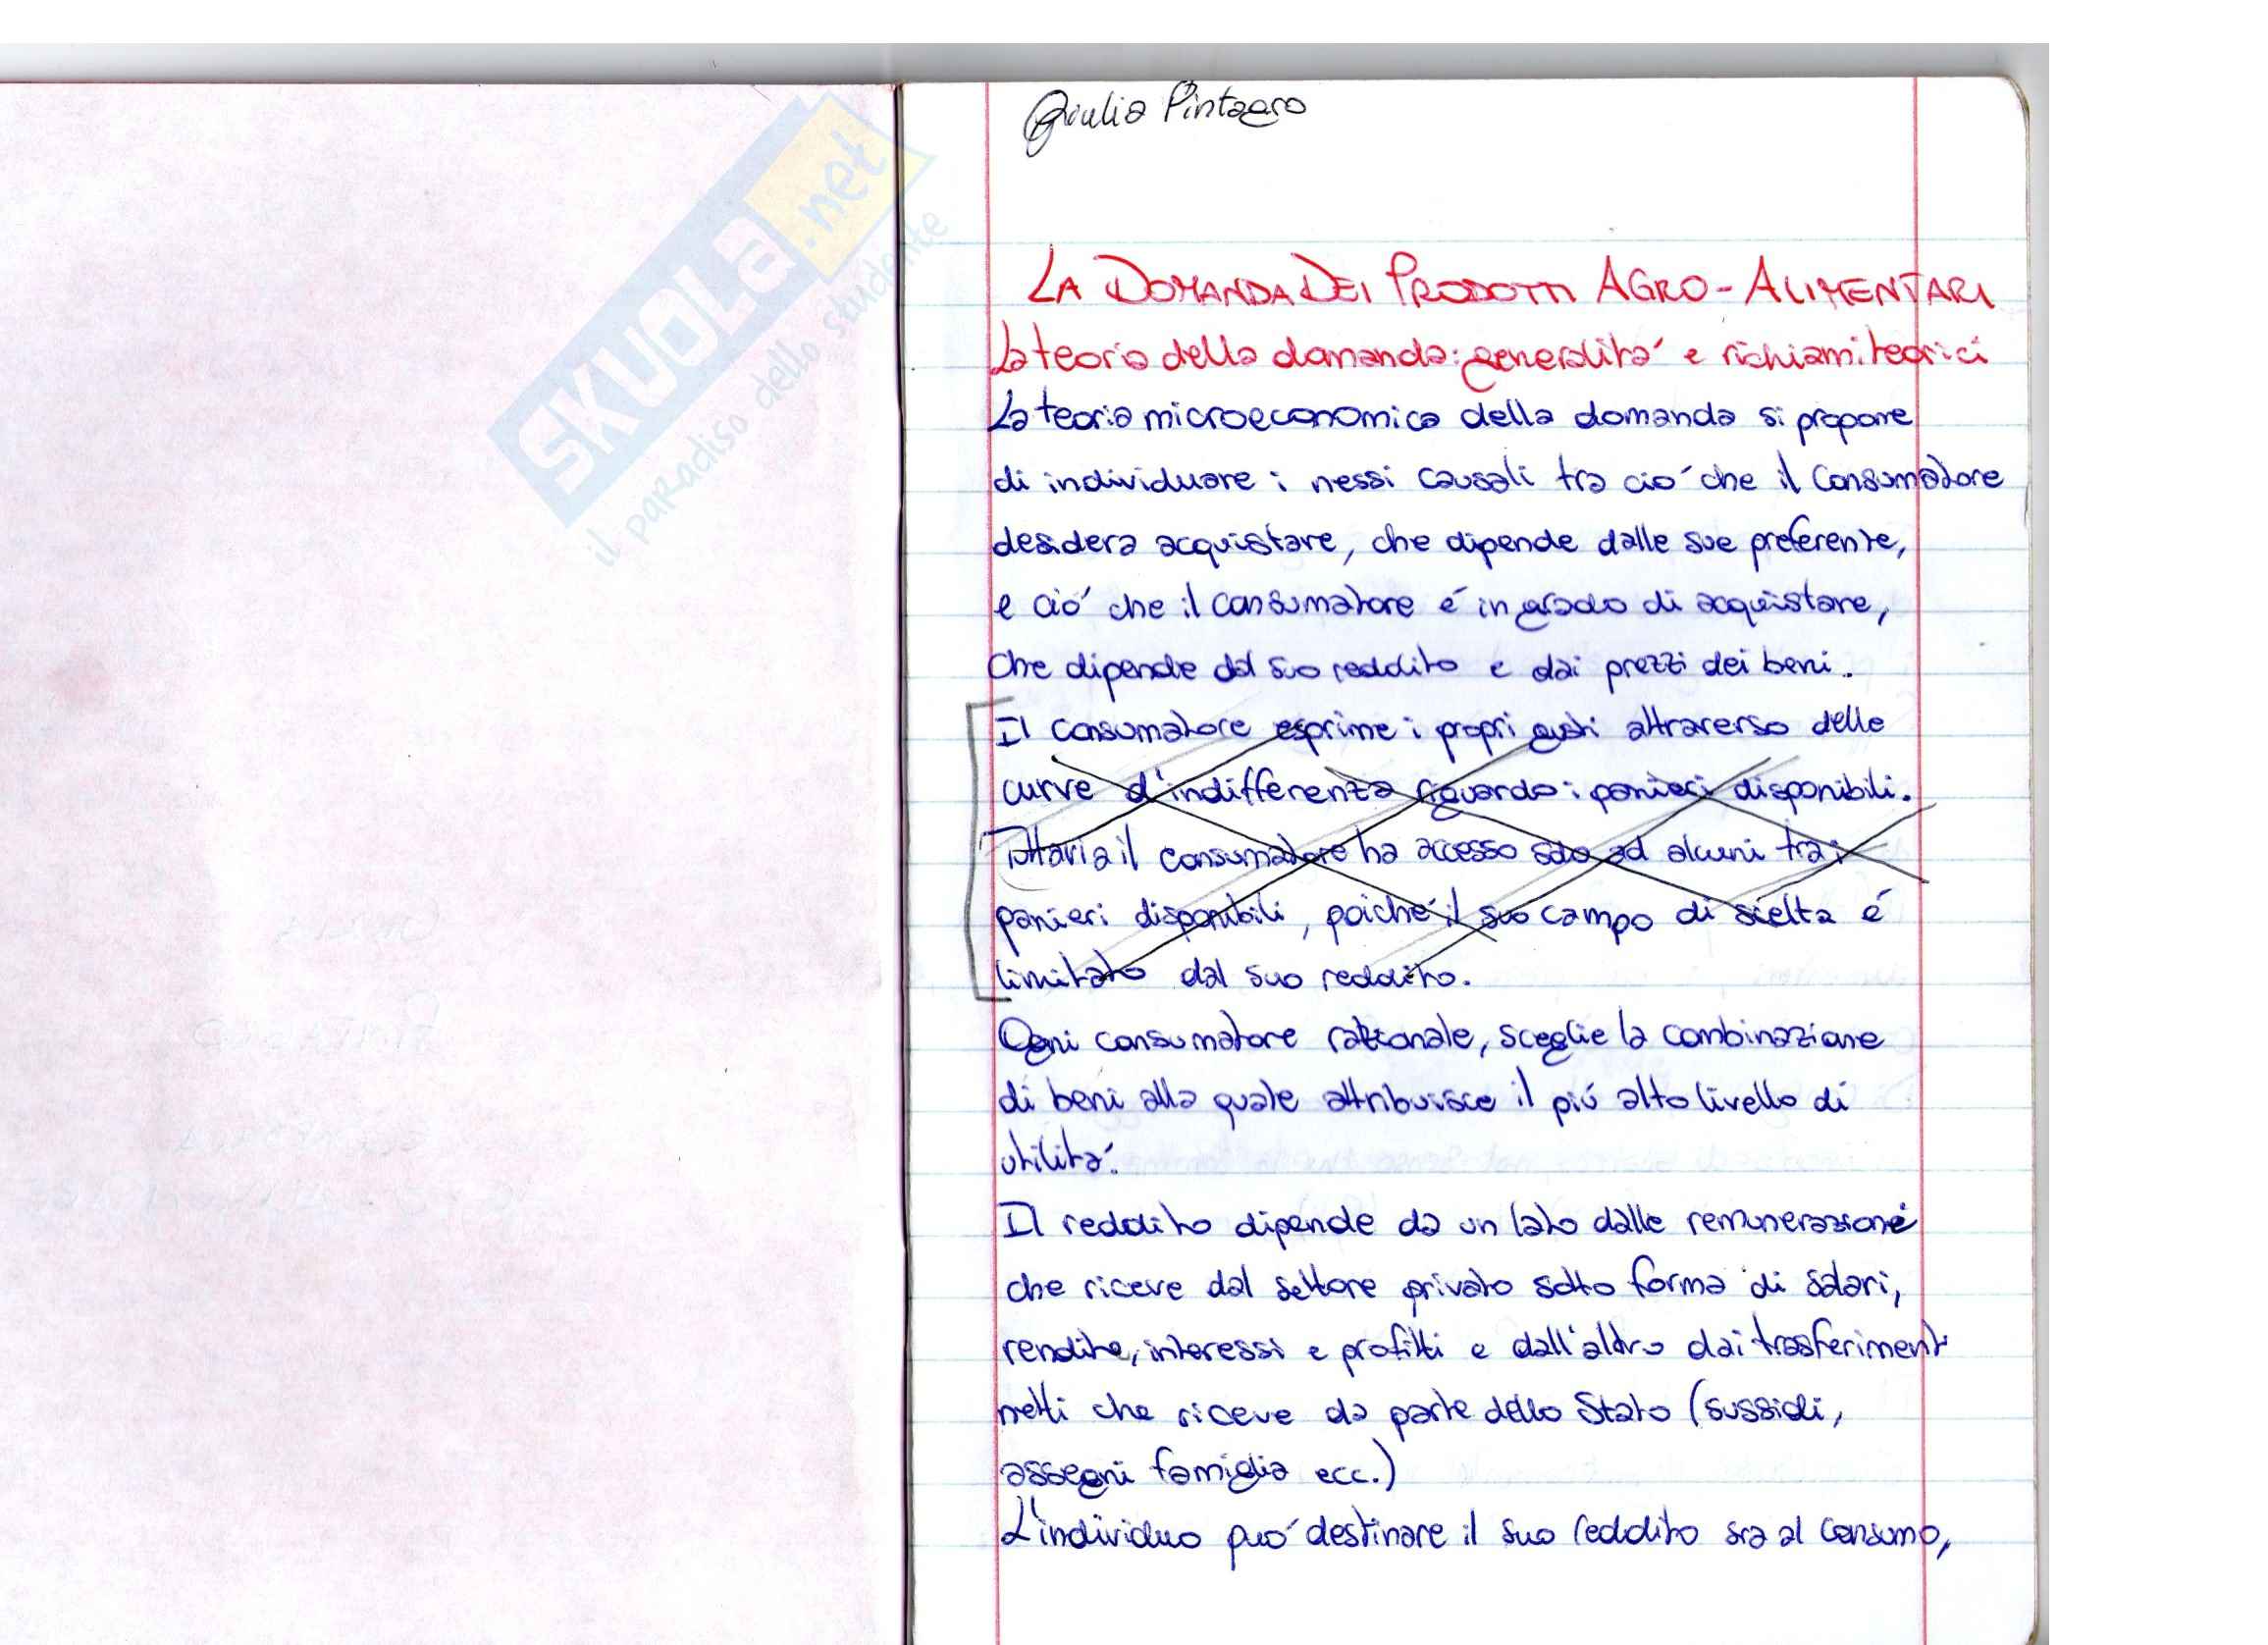 Giulia Pintagro
SKUOLA.net
il paradiso dello studente
LA DOMANDA DEI PRODOTTI AGRO-ALIMENTARI
La teoria della domanda: generalitá e richiami teorici
La teoria microeconomica della domanda si propone
di individuare i nessi causali tra ció che il consumatore
desidera acquistare, che dipende dalle sue preferenze,
e ció che il consumatore é in grado di acquistare,
che dipende dal suo reddito e dai prezzi dei beni.
Il consumatore esprime i propri gusti attraverso delle
curve d'indifferenza riguardo i panieri disponibili.
Tuttavia il consumatore ha accesso solo ad alcuni tra i
panieri disponibili, poiché il suo campo di scelta é
limitato dal suo reddito.
Ogni consumatore razionale, sceglie la combinazione
di beni alla quale attribuisce il piú alto livello di
utilitá.
Il reddito dipende da un lato dalle remunerazione
che riceve dal settore privato sotto forma di salari,
rendite, interessi e profitti e dall'altro dai trasferimenti
netti che riceve da parte dello Stato (sussidi,
assegni famiglia ecc.)
L'individuo puó destinare il suo reddito sia al consumo,